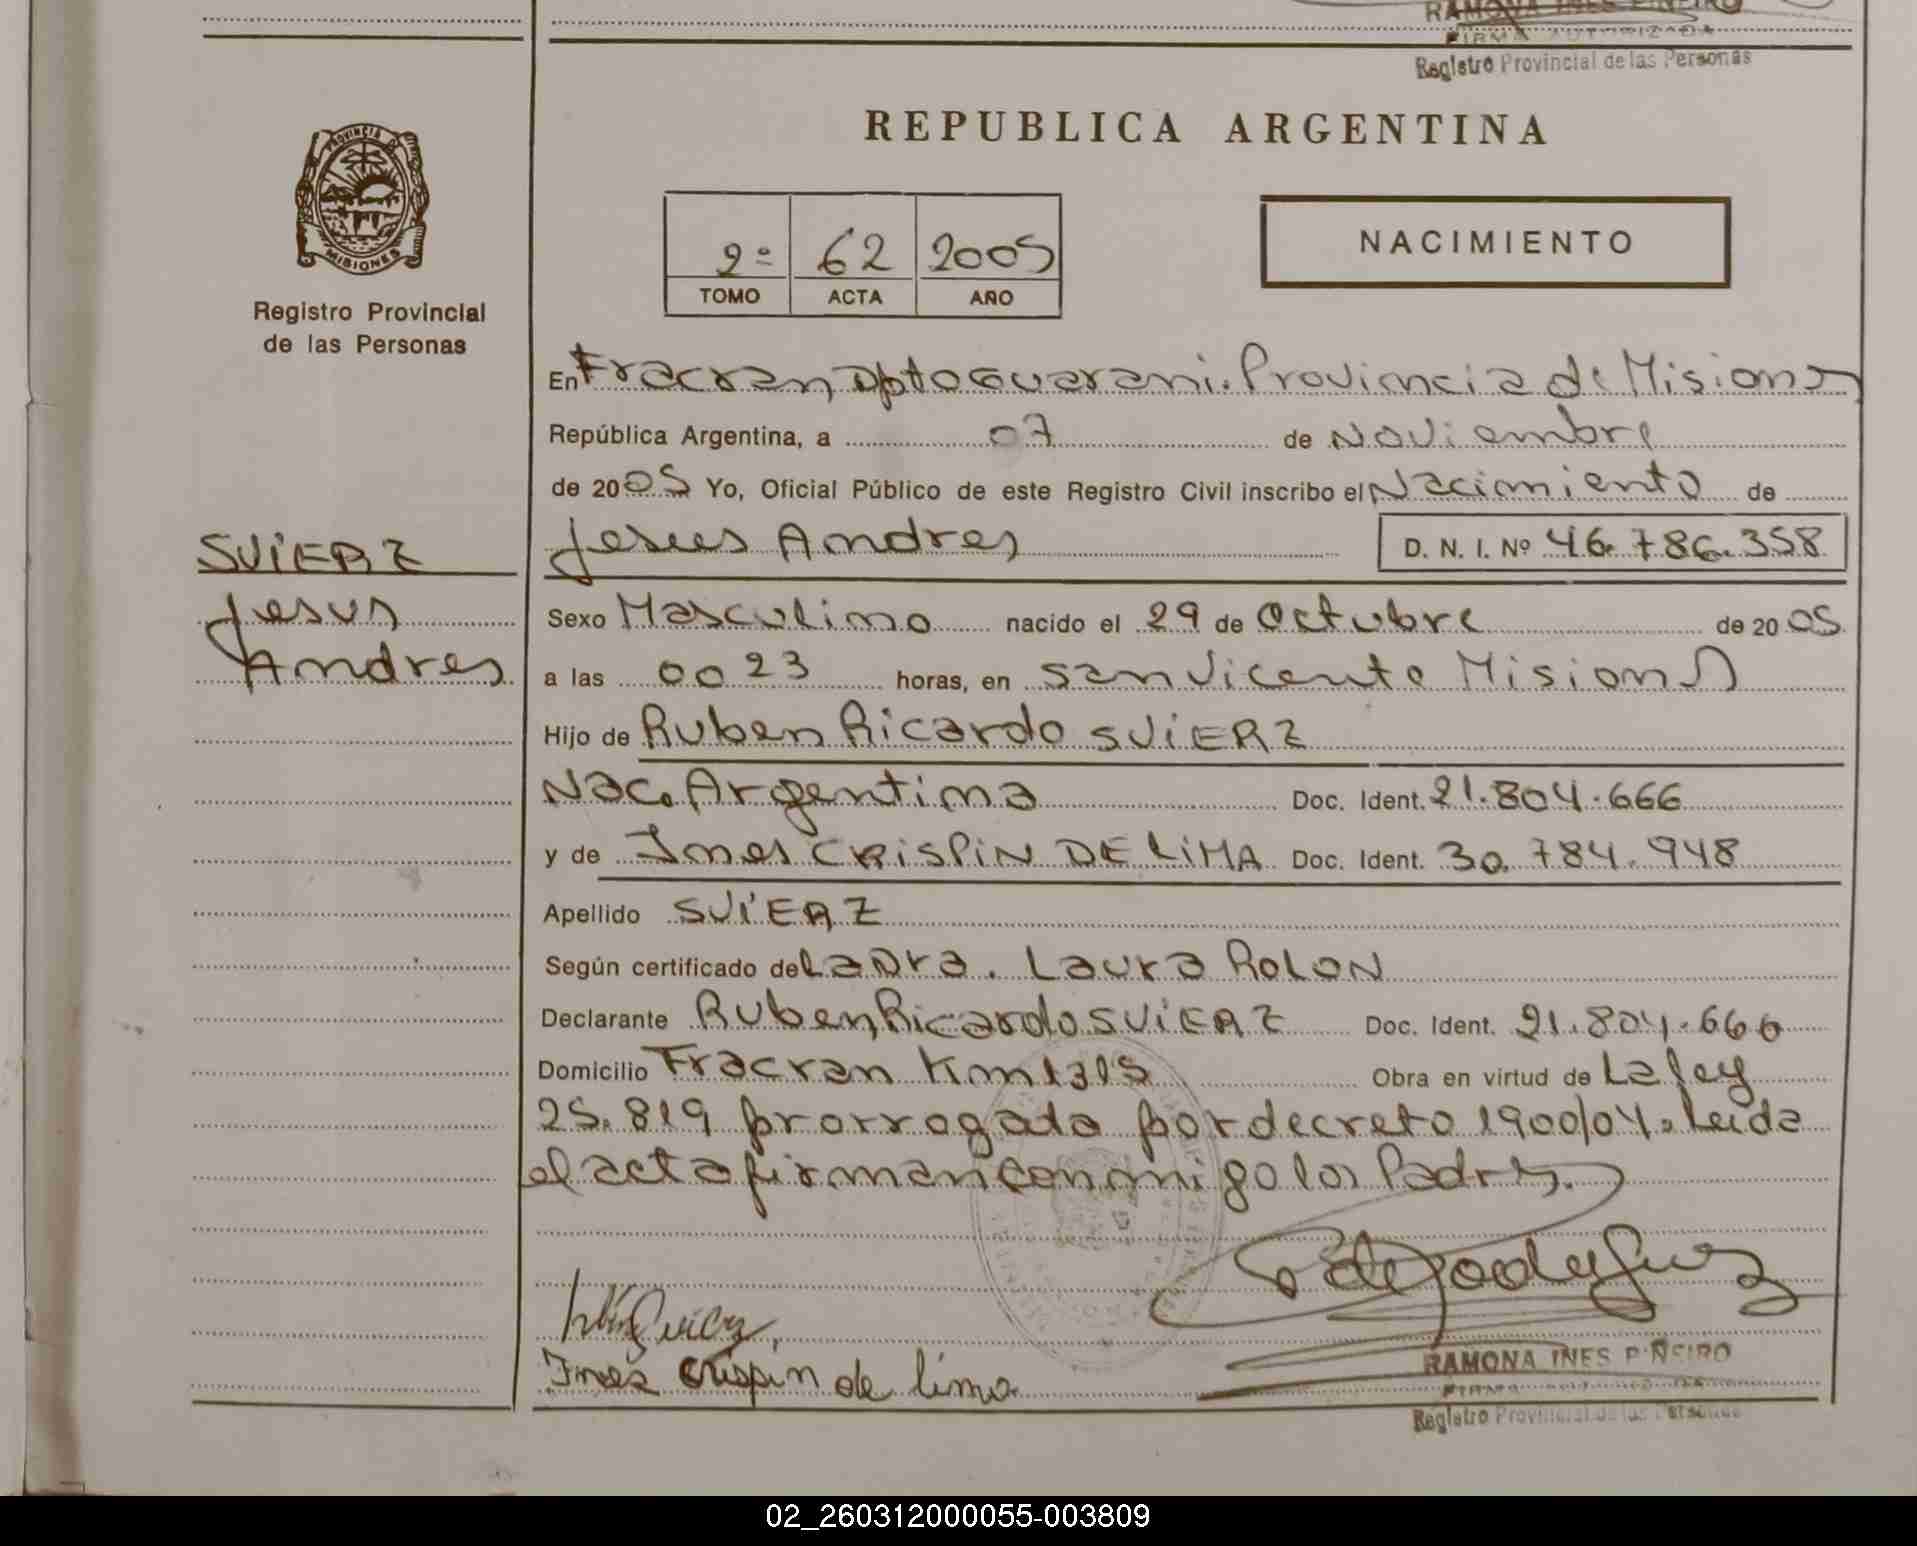 RAMONA INES PIÑEIRO
FIRMA AUTORIZADA
Registro Provincial de las Personas
PROVINCIA DE
MISIONES
Registro Provincial
de las Personas
REPUBLICA ARGENTINA
2º 62 2005
TOMO ACTA AÑO
NACIMIENTO
En Fracran, Dpto Guarani. Provincia de Misiones
República Argentina, a 07 de Noviembre
de 2005 Yo, Oficial Público de este Registro Civil inscribo el Nacimiento de
Jesus Andres D. N. I. Nº 46.786.358
SVIERZ
Jesus
Andres
Sexo Masculino nacido el 29 de Octubre de 2005
a las 0023 horas, en San Vicente Misiones
Hijo de Ruben Ricardo SVIERZ
Nac. Argentina Doc. Ident. 21.804.666
y de Ines CRISPIN DE LIMA Doc. Ident. 30.784.948
Apellido SVIERZ
Según certificado de La Dra. Laura ROLON
Declarante Ruben Ricardo SVIERZ Doc. Ident. 21.804.666
Domicilio Fracran Km 1315 Obra en virtud de La Ley
25.819 prorrogada por decreto 1900/04. Leida
el acta firman conmigo los Padres.
Ines Crispin de lima
RAMONA INES PIÑEIRO
Registro Provincial de las Personas
02_260312000055-003809